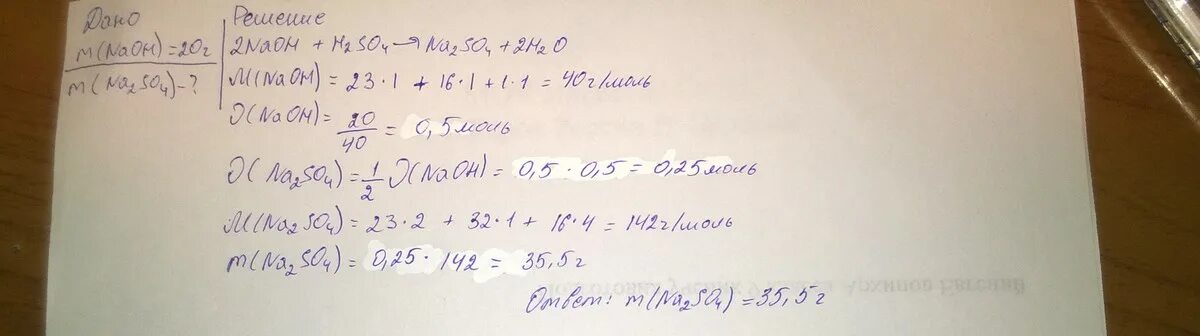 Дано
m(NaOH)=20г
m(Na₂SO₄)-?
Решение
2NaOH + H₂SO₄→Na₂SO₄+2H₂O
M(NaOH) = 23·1 + 16·1 +1·1 = 40г/моль
ϑ(NaOH)= 20/40 = 0,5моль
ϑ(Na₂SO₄)=1/2 ϑ(NaOH)= 0,5·0,5= 0,25моль
M(Na₂SO₄)= 23·2 + 32·1 + 16·4 = 142г/моль
m(Na₂SO₄) = 0,25·142 = 35,5г
Ответ: m(Na₂SO₄)=35,5г
Архипов Евгений